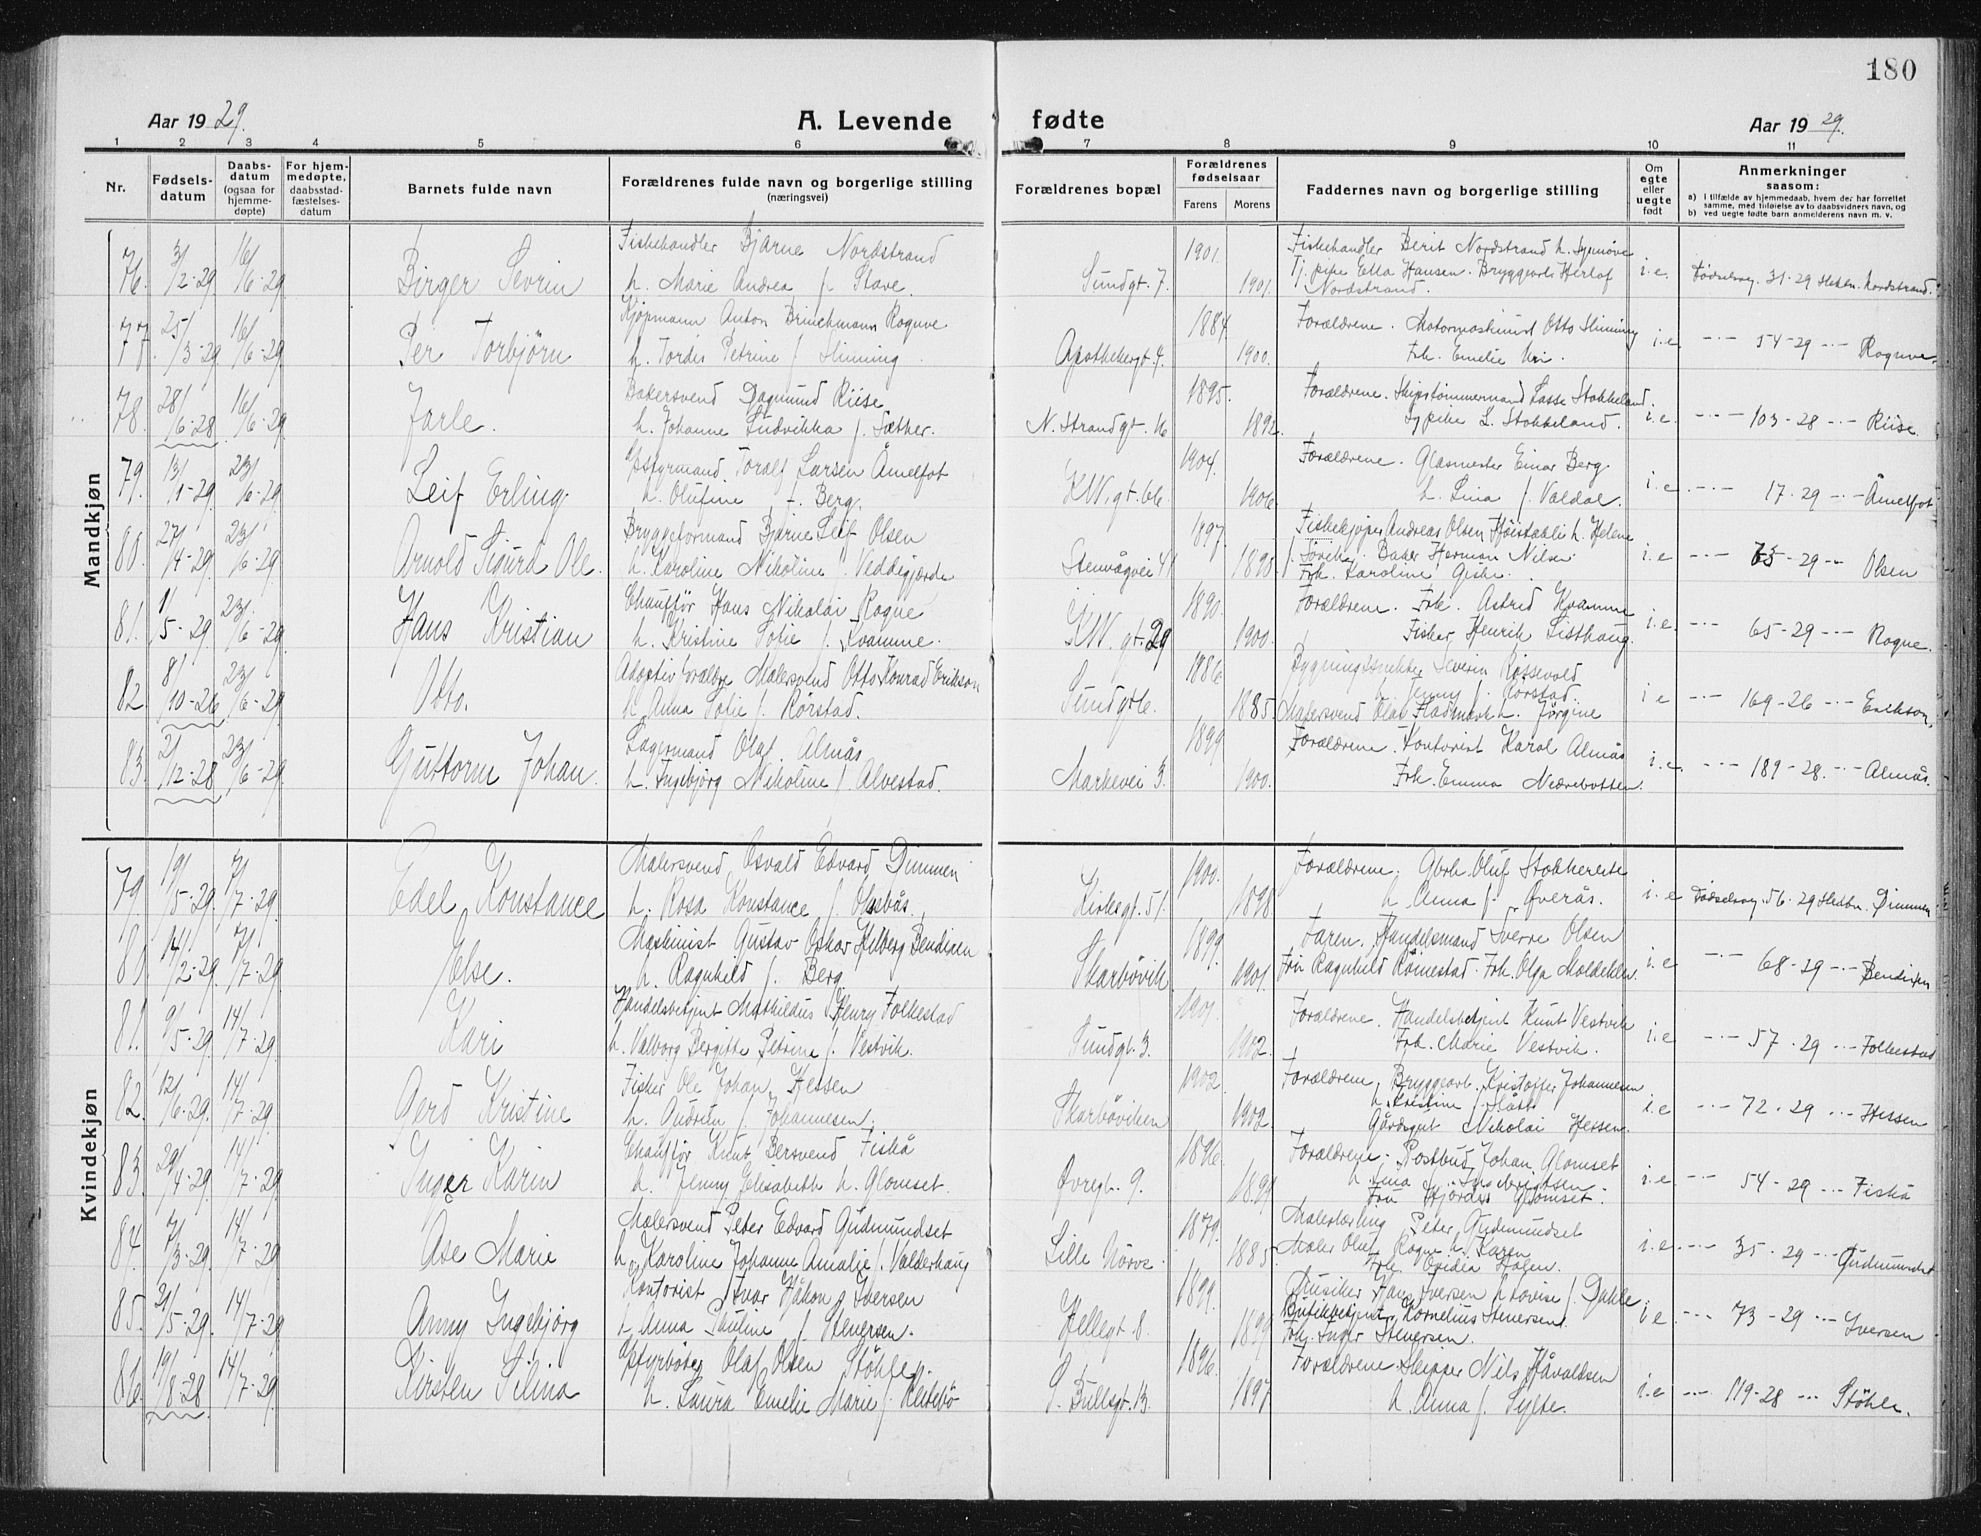 180
Aar 1929.
A. Levende fødte
Aar 1929.
1 2 3 4 5 6 7 8 9 10 11
Nr.
Fødsels-
datum
Daabs-
datum
(ogsaa for
hjemme-
døpte)
For hjem-
medøpte,
daabsstad-
fæstelses-
datum
Barnets fulde navn
Forældrenes fulde navn og borgerlige stilling
(næringsvei)
Forældrenes bopæl
Forældrenes
fødselsaar
Farens Morens
Faddernes navn og borgerlige stilling
Om
egte
eller
uegte
født
Anmerkninger
saasom:
a) I tilfælde av hjemmedaab, hvem der har forrettet
samme, med tilføielse av to daabsvidners navn, og
b) ved uegte fødte barn anmelderens navn m. v.
Mandkjøn
76. 3/12-29 16/6-29 Birger Sevrin
Fiskehandler Bjarne Nordstrand
h. Marie Andrea f. Stave.
Sundgt. 7. 1901. 1901.
Fiskehandler Berit Nordstrand h. Synnøve
Tj.pike Etta Hansen. Bryggearb. Herlof
Nordstrand.
i.e. Fødselsreg. 31-29 Nordstrand.
77. 25/3-29 16/6-29 Per Torbjörn
Kjøpmann Anton Brinchmann Rogne
h. Tordis Petrine f. Slinning.
Apothekergt. 4. 1884. 1900.
Forældrene. Motormaskinist Otto Slinning
Frk. Emelie Uri.
i.e. -"- 54-29 -"- Rogne.
78. 28/6-28 16/6-29 Jarle.
Bakersvend Dagmund Riise
h. Johanne Ludvikka f. Sæther.
N. Strandgt. 16 1895. 1892.
Forældrene. Skipstømmermand Lasse Stokkeland.
Sypike L. Stokkeland.
i.e. -"- 103-28 -"- Riise
79. 13/1-29 23/6-29 Leif Erling.
Toralf Larsen Åmelfot
h. Olufine f. Berg.
KW. gt. 66 1904. 1906.
Forældrene. Glasmester Einar Berg.
h. Lina f. Valdal.
i.e. -"- 17-29 -"- Åmelfot
80. 27/4-29 23/6-29 Arnold Sigurd Ole.
Bryggeformand Bjarne Leif Olsen
h. Karoline Nikoline f. Veddegjerde
Stenvågvei 41 1897. 1895.
Fiskekjøper Andreas Olsen h. Helene
f. Søvik. Baker Herman Nilsen
Frk. Karoline Giske.
i.e. -"- 75-29 -"- Olsen
81. 1/5-29 23/6-29 Hans Kristian
Chauffør Hans Nikolai Rogne
h. Kristine Sofie f. Kvamme.
KW. gt. 29 1890. 1900.
Forældrene. Frk. Astrid Kvamme
Fisker Henrik Listhaug.
i.e. -"- 65-29 -"- Rogne.
82. 8/10-26 23/6-29 Otto.
Adoptivforældre Malersvend Otto Konrad Erikson
h. Anna Sofie f. Rørstad.
Sundgt 6. 1886. 1885.
Severin Røssevold
h. Jenny f. Rørstad.
Malersvend Olav Fladmark h. Jørgine
i.e. -"- 169-26 -"- Erikson.
83. 2/12-28 23/6-29 Guttorm Johan.
Lagermand Olaf Almås
h. Ingebjørg Nikoline f. Alvestad.
Markevei 3. 1899. 1900.
Forældrene. Kontorist Karol Almås
Frk. Emma Nedrebotten.
i.e. -"- 189-28. -"- Almås.
Kvindekjøn
79. 19/5-29 7/7-29 Edel Konstance
Malersvend Osvald Edvard Dimmen
h. Rosa Konstance f. Olsbås.
Kirkegt. 51. 1900. 1898.
Forældrene. Gbrk. Oluf Stokkereite
h. Anna f. Øverås.
i.e. Fødselsreg. 56.29 Dimmen
80. 14/2-29 7/7-29 Else.
Maskinist Gustav Oskar Hilberg Bendixen
h. Ragnhild f. Berg
Skarbøvik. 1899. 1901.
Faren. Handelsmand Sverre Olsen
Fru Ragnhild Rømestad. Frk. Olga Moldeklev.
i.e. -"- 68-29 -"- Bendixen
81. 9/5-29 14/7-29 Kari
Handelsbetjent Mathildus Henry Folkestad
h. Valborg Bergitte Petrine f. Vestvik.
Sundgt. 3. 1901. 1902.
Forældrene. Handelsbetjent Knut Vestvik
Frk. Marie Vestvik.
i.e. -"- 57.29 -"- Folkestad
82. 12/6-29. 14/7-29 Gerd Kristine
Fisker Ole Johan Hessen
h. Gudrun f. Johannesen.
Skarbøviken 1902. 1902.
Forældrene. Bryggearb. Kristoffer Johannesen
h. Kristine f. Slått
Gårdsgut Nikolai Hessen.
i.e. -"- 72-29 -"- Hessen
83. 29/4-29 14/7-29 Inger Karin
Chauffør Knut Bersvend Fiskå
h. Jenny Elisabeth h. Glomset.
Øvregt. 9. 1896. 1899.
Forældrene. Postbud Johan Glomset
h. Lina f. Ingebrigtsen
Fru Hjørdis Glomset.
i.e. -"- 54-29 -"- Fiskå
84. 7/3-29. 14/7-29 Åse Marie
Malersvend Peter Edvard Gudmundset
h. Karoline Johanne Amalie f. Valderhaug
Lille Nørve. 1879. 1885.
Malerlærling Peter Gudmundset
Maler Oluf Rogne h. Karen
Frk. Ovidia Holen.
i.e. -"- 35.29 -"- Gudmundset
85. 21/5-29. 14/7-29 Anny Ingebjørg
Kontorist Ivar Håkon Iversen
h. Anna Pauline f. Stenersen.
Hellegt. 8. 1899. 1899.
Musiker Hans Iversen h. Lovise f. Dahle
Butikkbetjent Kornelius Stenersen
Frk. Inger Stenersen.
i.e. -"- 73-29 -"- Iversen
86. 19/8-28 14/7-29 Kirsten Silina
Fyrbøter Olaf Olsen Støhle.
h. Laura Emelie Marie f. Kleivbø
O. Bullsgt. 13. 1896. 1897.
Forældrene. Skipper Nils Håvaldsen
h. Anna f. Sylte.
i.e. -"- 119-28 -"- Støhle.